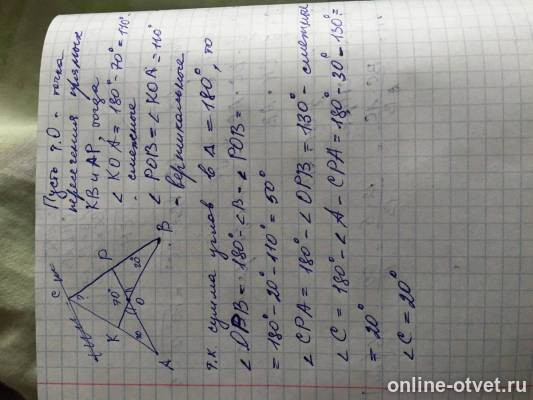 Пусть т.О - точка
пересечения прямых
KB и AP, тогда
∠ KOA = 180° - 70° = 110°
- смежные
∠ POB = ∠ KOA = 110°
- вертикальные
т.к. сумма углов в Δ = 180°, то
∠ OPB = 180° - ∠B - ∠POB =
= 180° - 20° - 110° = 50°
∠ CPA = 180° - ∠ OPB = 130° - смежные
∠ C = 180° - ∠ A - CPA = 180° - 30° - 130° =
= 20°
∠C = 20°
C
?
K
P
70°
20°
O
A
B
online-otvet.ru